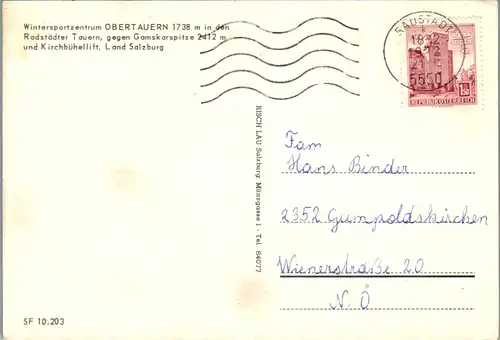 Wintersportzentrum OBERTAUERN 1738 m in den
Radstädter Tauern, gegen Gamskarspitze 2412 m
und Kirchbühellift, Land Salzburg
RADSTADT
18.12.
1972
21
5550
1.50
REPUBLIK ÖSTERREICH
RISCH LAU Salzburg Münzgasse 1 - Tel. 84077
Fam
Hans Binder
2352 Gumpoldskirchen
Wienerstraße 20
N.Ö
SF 10.203